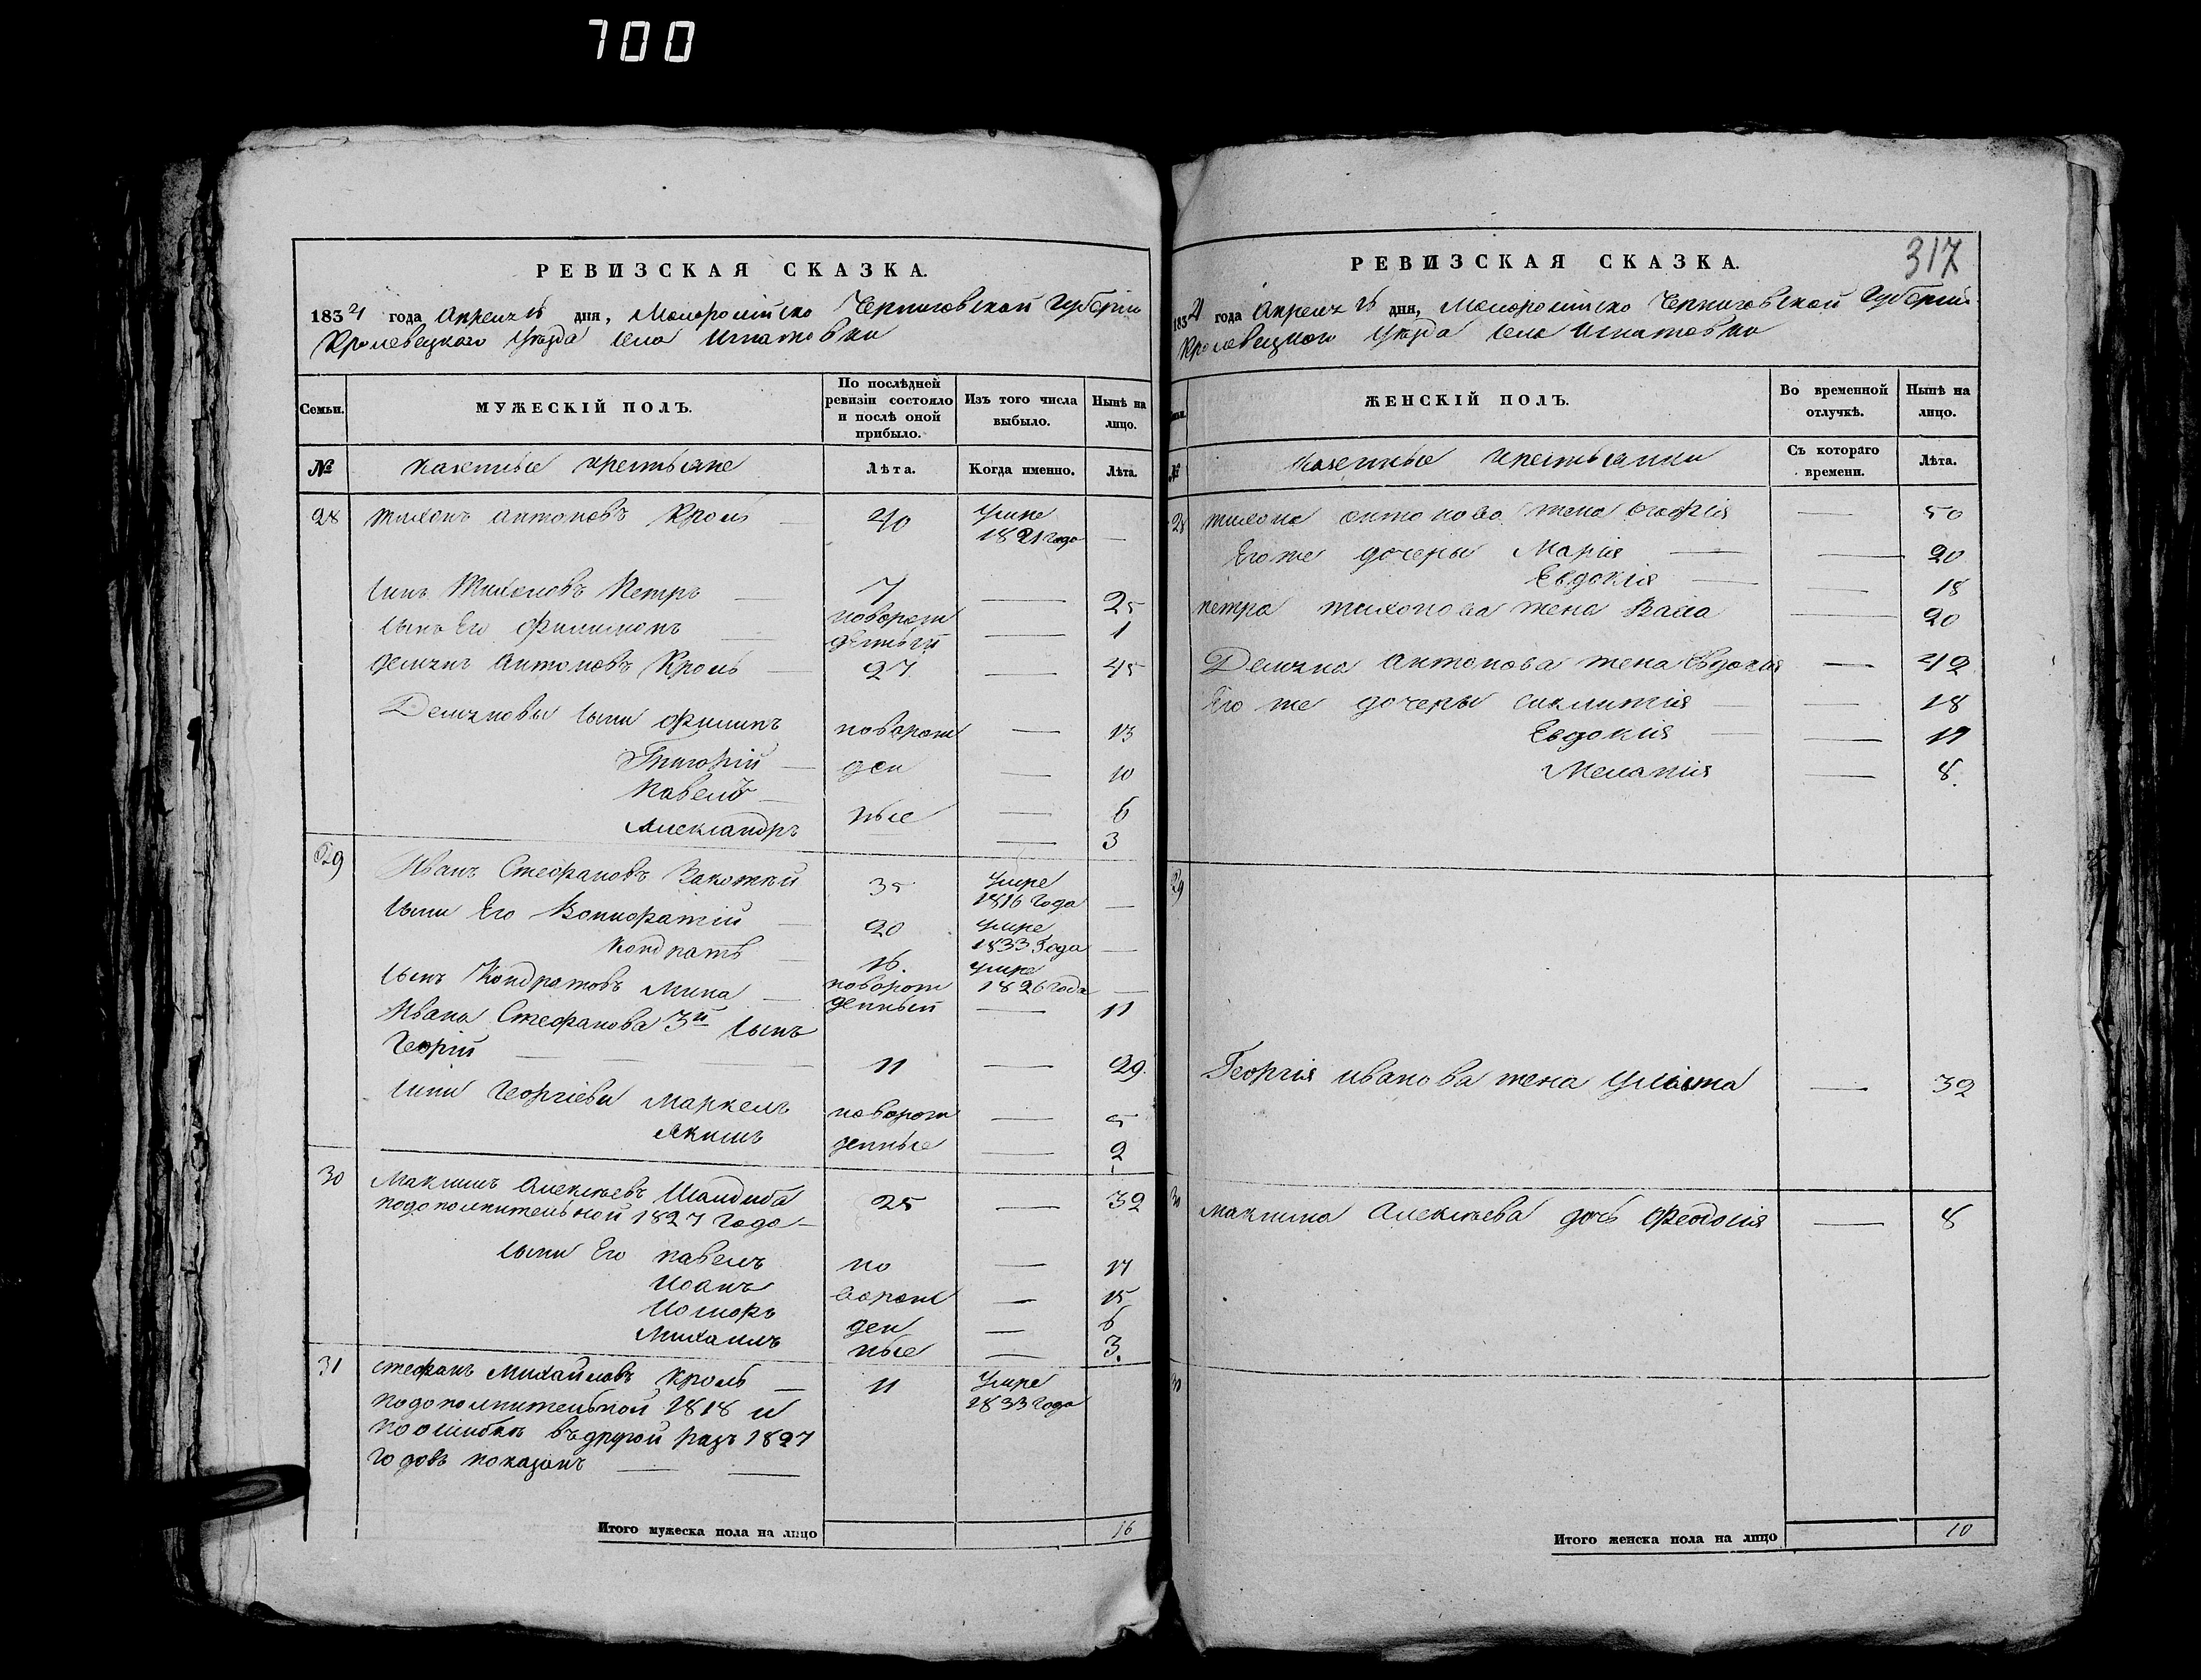 700
РЕВИЗСКАЯ СКАЗКА.
1834 года Апреля дня, Малоросійско Черниговской Губерніи
Кролевецкого Уѣзда села Игнатовки
Семьи.
МУЖЕСКІЙ ПОЛЪ.
По послѣдней ревизіи состояло и послѣ оной прибыло.
Изъ того числа выбыло.
Нынѣ на лицо.
№
казенные крестьяне
Лѣта.
Когда именно.
Лѣта.
28 Тихонъ Антоновъ Кроль — 40 Умре 1821 года —
сынъ Тихоновъ Петръ — 7 — 25
сынъ Его Филимонъ — новорожденный — 1
Демянъ Антоновъ Кроль — 27 — 45
Демяновы сыны Филипъ новорож — 13
Григорій — ден — 10
Павелъ — 6
Александръ ные — 3
29 Иванъ Стефановъ 35 Умре 1816 года —
сыны Его — 20 Умре 1833 Года —
Кондратъ — 16. Умре 1826 года —
сынъ Кондратовъ Мина — новорожденный — 11
Ивана Стефанова 3й сынъ
Георгій — 11 — 29.
сыны Георгіевы Маркелъ новорож — 5
Якимъ денные — 2
30 Максимъ Алексѣевъ Шандиба 25 — 32
подополнительной 1827 года —
сыны Его павелъ но — 17
Иоанъ ворож — 15
ден — 6
Михаилъ ные — 3.
31 Стефанъ Михайловъ Кроль — 11 Умре 1833 года
подополнительной 1818 и
поошибкѣ въдругой разъ 1827
годовъ показанъ —
Итого мужеска пола на лицо 16
317
РЕВИЗСКАЯ СКАЗКА.
1834 года Апреля дня, Малоросійско Черниговской Губерніи
Кролевецкого Уѣзда села Игнатовки
Семьи.
ЖЕНСКІЙ ПОЛЪ.
Во временной отлучкѣ.
Нынѣ на лицо.
№
казенные крестьянки
Съ котораго времени.
Лѣта.
28 Тихона Антонова жена — 50
Его же дочеры Марія — 20
Евдокія — 18
петра тихонова жена Васса — 20
Демяна Антонова жена Евдокія — 42
Его же дочеры Синклитія — 18
Евдокія — 17
Меланія — 8.
29
Георгія иванова жена Уліта — 32
30 максима Алексѣева дочь Феодосія — 8
31
Итого женска пола на лицо 10